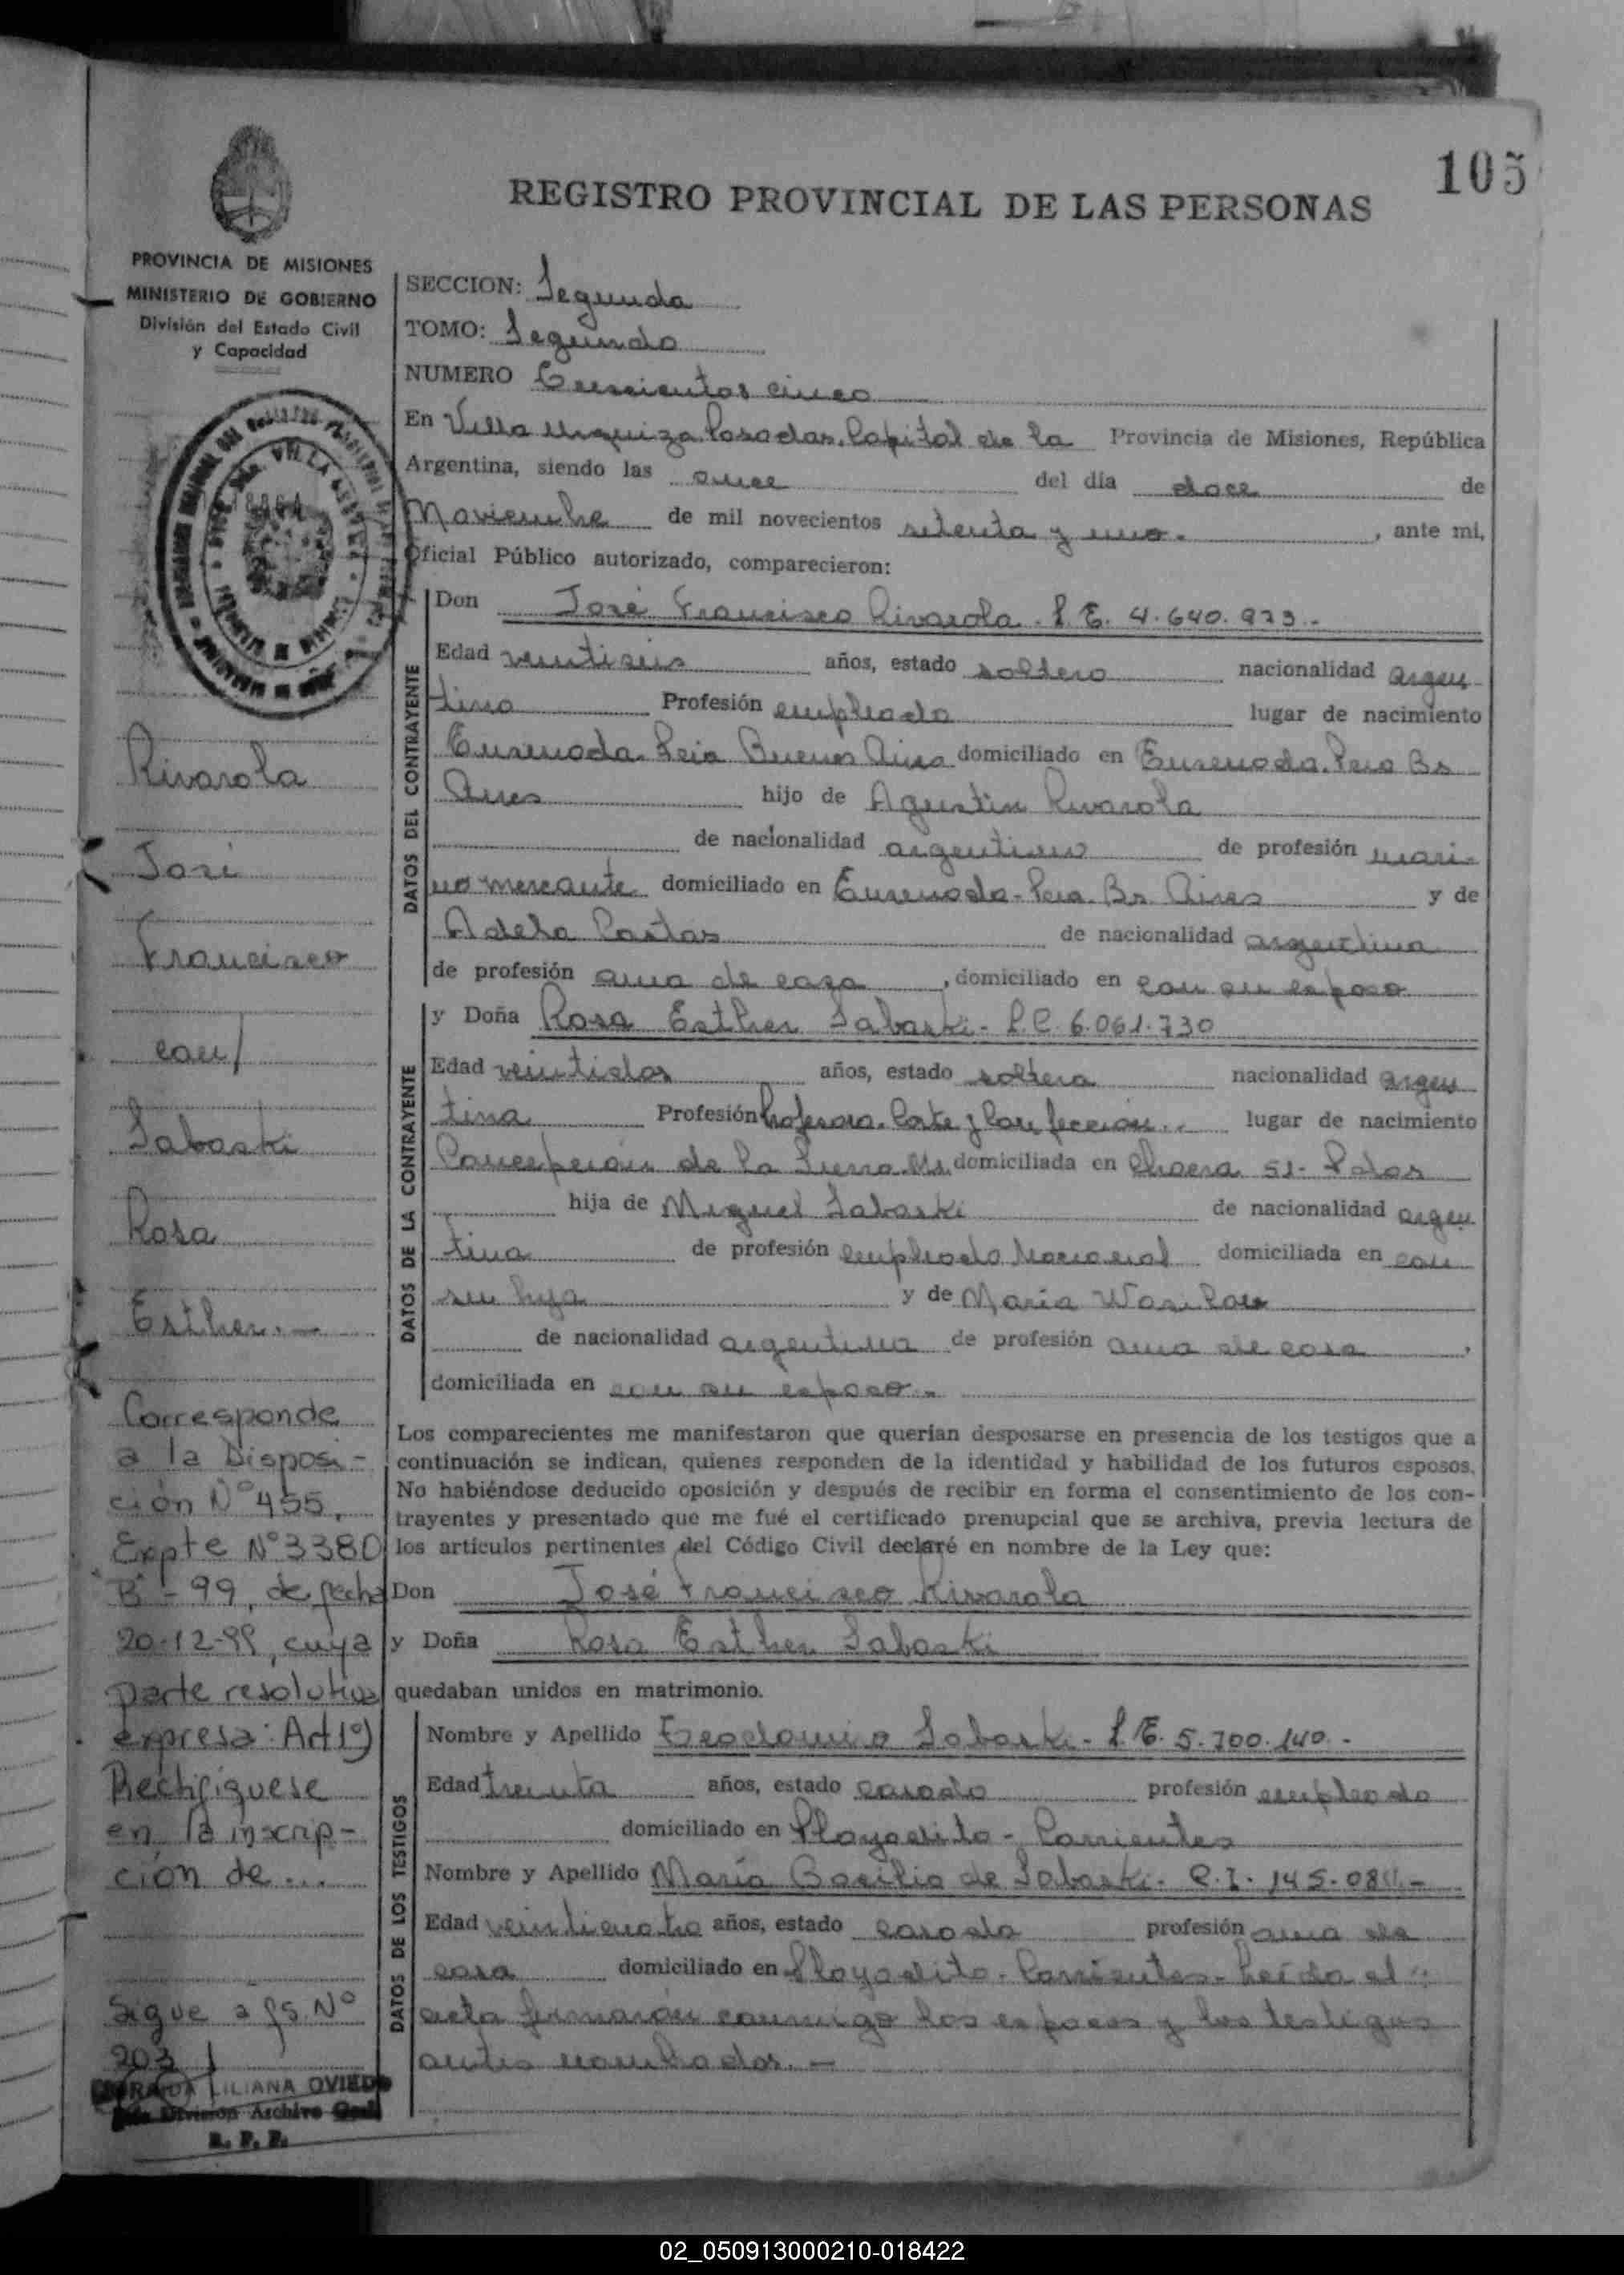 105
REGISTRO PROVINCIAL DE LAS PERSONAS
PROVINCIA DE MISIONES
MINISTERIO DE GOBIERNO
División del Estado Civil
y Capacidad
SECCION: Segunda
TOMO: Segundo
NUMERO Trescientos cinco
En Villa Urquiza Posadas. Capital de la Provincia de Misiones, República
Argentina, siendo las once del día doce de
Noviembre de mil novecientos setenta y uno. , ante mi,
Oficial Público autorizado, comparecieron:
DATOS DEL CONTRAYENTE
Don José Francisco Rivarola. L.E. 4.640.973.-
Edad veintiseis años, estado soltero nacionalidad argen
tino Profesión empleado lugar de nacimiento
Ensenada. Pcia Buenos Aires domiciliado en Ensenada. Pcia Bs
Aires hijo de Agustin Rivarola
de nacionalidad argentino de profesión mari-
no mercante domiciliado en Ensenada- Pcia. Bs. Aires y de
Adela Costas de nacionalidad argentina
de profesión ama de casa , domiciliado en con su esposo
DATOS DE LA CONTRAYENTE
y Doña Rosa Esther Sabaski- L.C. 6.061.730
Edad veintidos años, estado soltera nacionalidad argen
tina Profesión Profesora. Corte y Confección.. lugar de nacimiento
Concepción de la Sierra. Ms. domiciliada en 51- Pdas
hija de Miguel Sabaski de nacionalidad argen
tina de profesión empleado Nacional domiciliada en con
su hija y de Maria
de nacionalidad argentina de profesión ama de casa ,
domiciliada en con su esposo.
Los comparecientes me manifestaron que querían desposarse en presencia de los testigos que a
continuación se indican, quienes responden de la identidad y habilidad de los futuros esposos.
No habiéndose deducido oposición y después de recibir en forma el consentimiento de los con-
trayentes y presentado que me fué el certificado prenupcial que se archiva, previa lectura de
los artículos pertinentes del Código Civil declaré en nombre de la Ley que:
Don José Francisco Rivarola
y Doña Rosa Esther Sabaski
quedaban unidos en matrimonio.
DATOS DE LOS TESTIGOS
Nombre y Apellido Sabaski- L.E. 5.700.140.-
Edad treinta años, estado casado profesión empleado
domiciliado en Playadito - Corrientes
Nombre y Apellido María Basilia de Sabaski- C.I. 145.08
Edad veinticuatro años, estado casada profesión ama de
casa domiciliado en Playadito- Corrientes- Leída el
acta firmarón conmigo los esposos y los testigos
antes nombrados. —
Rivarola
José
Francisco
con/
Sabaski
Rosa
Esther.—
Corresponde
a la Disposi-
ción N° 455,
Expte N° 3380
"B"-99, de fecha
20-12-99, cuya
parte resolutiva
expresa: Art 1°)
Rectifíquese
en la inscrip-
ción de...
Sigue a fs. N°
203
LILIANA OVIEDO
División Archivo Gral
R. P. P.
02_050913000210-018422